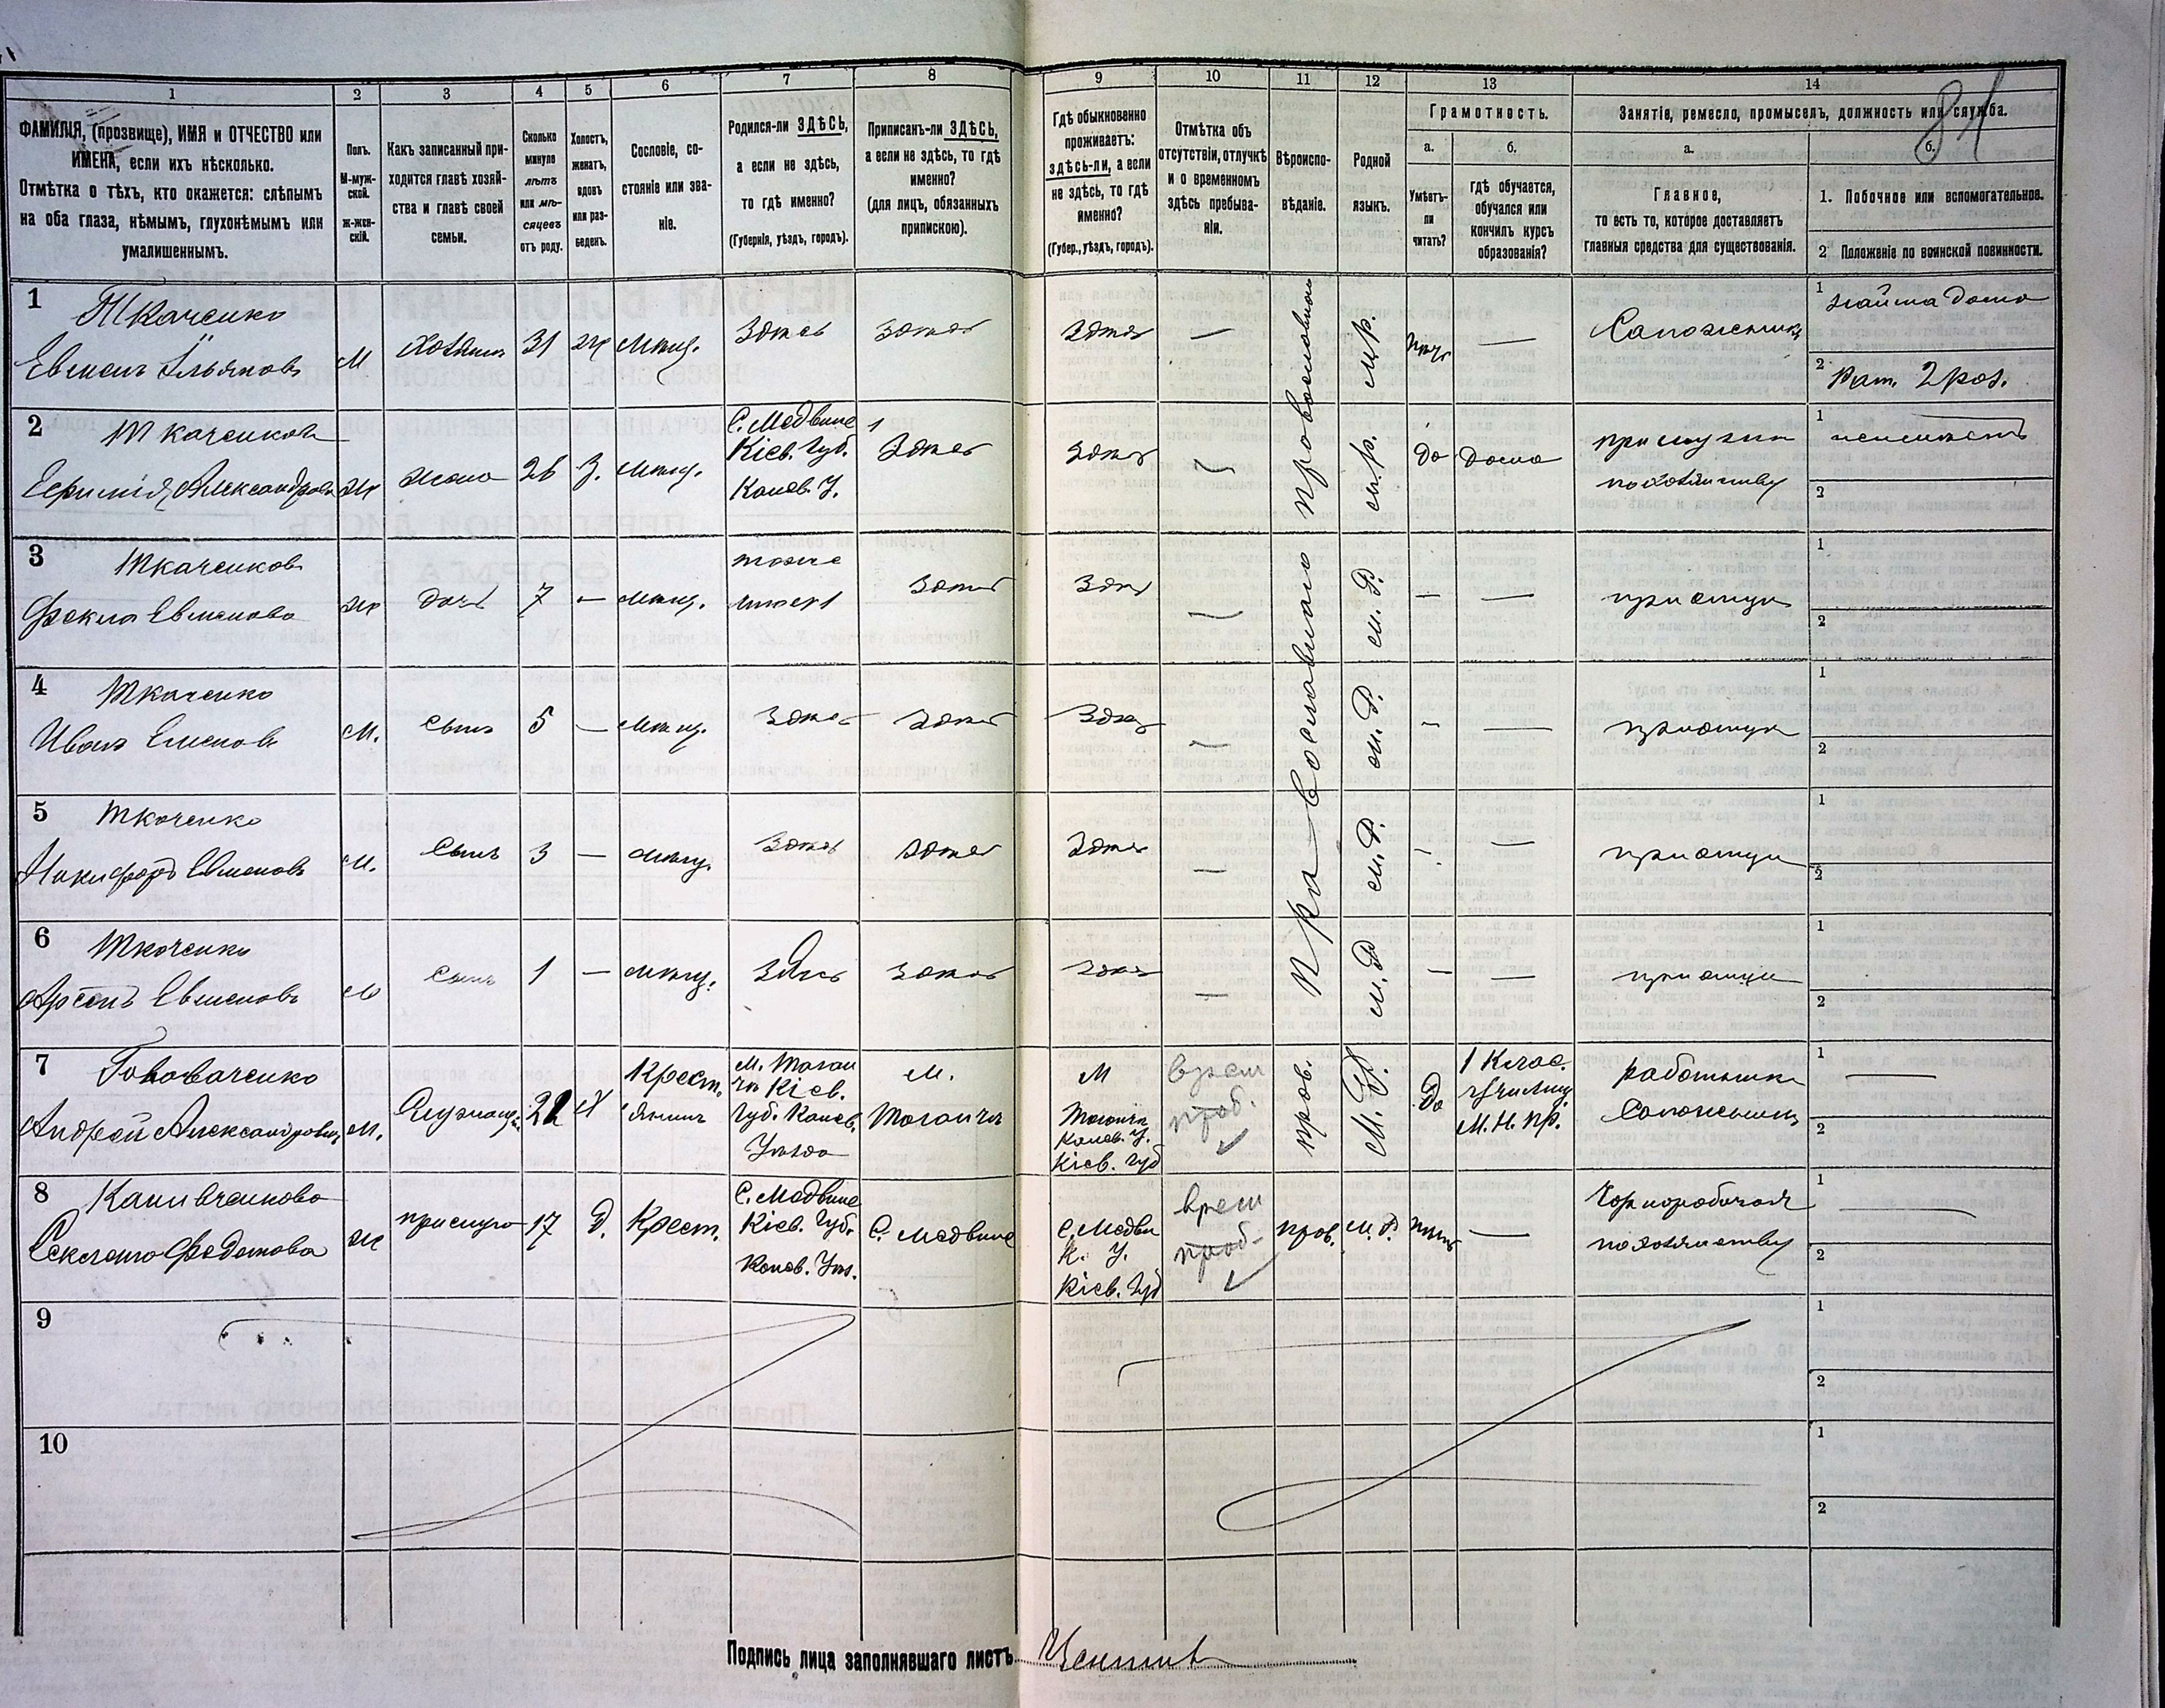 1
2
3
4
5
6
7
8
9
10
11
12
13
14
81
ФАМИЛІЯ, (прозвище), ИМЯ и ОТЧЕСТВО или
ИМЕНА, если ихъ нѣсколько.
Отмѣтка о тѣхъ, кто окажется: слѣпымъ
на оба глаза, нѣмымъ, глухонѣмымъ или
умалишеннымъ.
Полъ.
М-муж-
ской.
ж-жен-
скій.
Какъ записанный при-
ходится главѣ хозяй-
ства и главѣ своей
семьи.
Сколько
минуло
лѣтъ
или мѣ-
сяцевъ
отъ роду.
Холостъ,
женатъ,
вдовъ
или раз-
веденъ.
Сословіе, со-
стояніе или зва-
ніе.
Родился-ли ЗДѢСЬ,
а если не здѣсь,
то гдѣ именно?
(Губернія, уѣздъ, городъ).
Приписанъ-ли ЗДѢСЬ,
а если не здѣсь, то гдѣ
именно?
(для лицъ, обязанныхъ
припискою).
Гдѣ обыкновенно
проживаетъ:
здѣсь-ли, а если
не здѣсь, то гдѣ
именно?
(Губер., уѣздъ, городъ).
Отмѣтка объ
отсутствіи, отлучкѣ
и о временномъ
здѣсь пребыва-
ніи.
Вѣроиспо-
вѣданіе.
Родной
языкъ.
Грамотность.
а.
Умѣетъ-
ли
читать?
б.
гдѣ обучается,
обучался или
кончилъ курсъ
образованія?
Занятіе, ремесло, промыселъ, должность или служба.
а.
Главное,
то есть то, которое доставляетъ
главныя средства для существованія.
б.
1. Побочное или вспомогательное.
2 Положеніе по воинской повинности.
1
Ткаченко
Евменъ Ильяновъ
М
Хозяинъ
31
ж
мѣщ.
Здѣсь
Здѣсь
Здѣсь
—
Православного
м.р.
—
Сапожникъ
1
найма дома
2
Рат. 2 раз.
2
Ткаченкова
Ефимія Александрова
ж
жена
26
З.
мѣщ.
С. Медвине
Кіев. Губ.
Канев. У.
Здѣсь
Здѣсь
—
м.р.
да
Дома
при мужи
по хозяйству
1
2
3
Ткаченкова
Фекла Евменова
ж
дочь
7
—
мѣщ.
тоже
Здѣсь
Здѣсь
—
Православного
м. Р.
—
—
при отцу
1
2
4
Ткаченко
Иванъ Евменовъ
М.
Сынъ
5
—
мѣщ.
Здѣсь
Здѣсь
Здѣсь
—
м. Р.
—
—
при отцу
1
2
5
Ткаченко
Никифоръ Евменовъ
М.
Сынъ
3
—
мѣщ.
Здѣсь
Здѣсь
Здѣсь
—
м. Р.
—
—
при отцу
1
2
6
Ткаченко
Арсенъ Евменовъ
М
Сынъ
1
—
мѣщ.
Здѣсь
Здѣсь
Здѣсь
—
м. Р
—
—
при отцу
1
2
7
Андрей Александровъ
М.
22
Х
Крест.
янинъ
Кіев.
Губ. Канев.
Уѣзда
М.
М
Канев. У.
Кіев. Губ
врем
проб.
✓
прав.
М. Р.
Да
1 Клас.
училищ
М. Н. Пр.
работникъ
Сапожникъ
1
—
2
8
Федотова
ж
прислуга
17
Д.
Крест.
С. Медвине
Кіев. Губ.
Канев. Уѣз.
С. Медвине
С. Медви
К. У.
Кіев. Губ
врем
проб.
✓
прав.
м. Р.
—
Чорноробочая
по хозяйству
1
—
2
9
1
2
10
1
2
Подпись лица заполнявшаго листъ